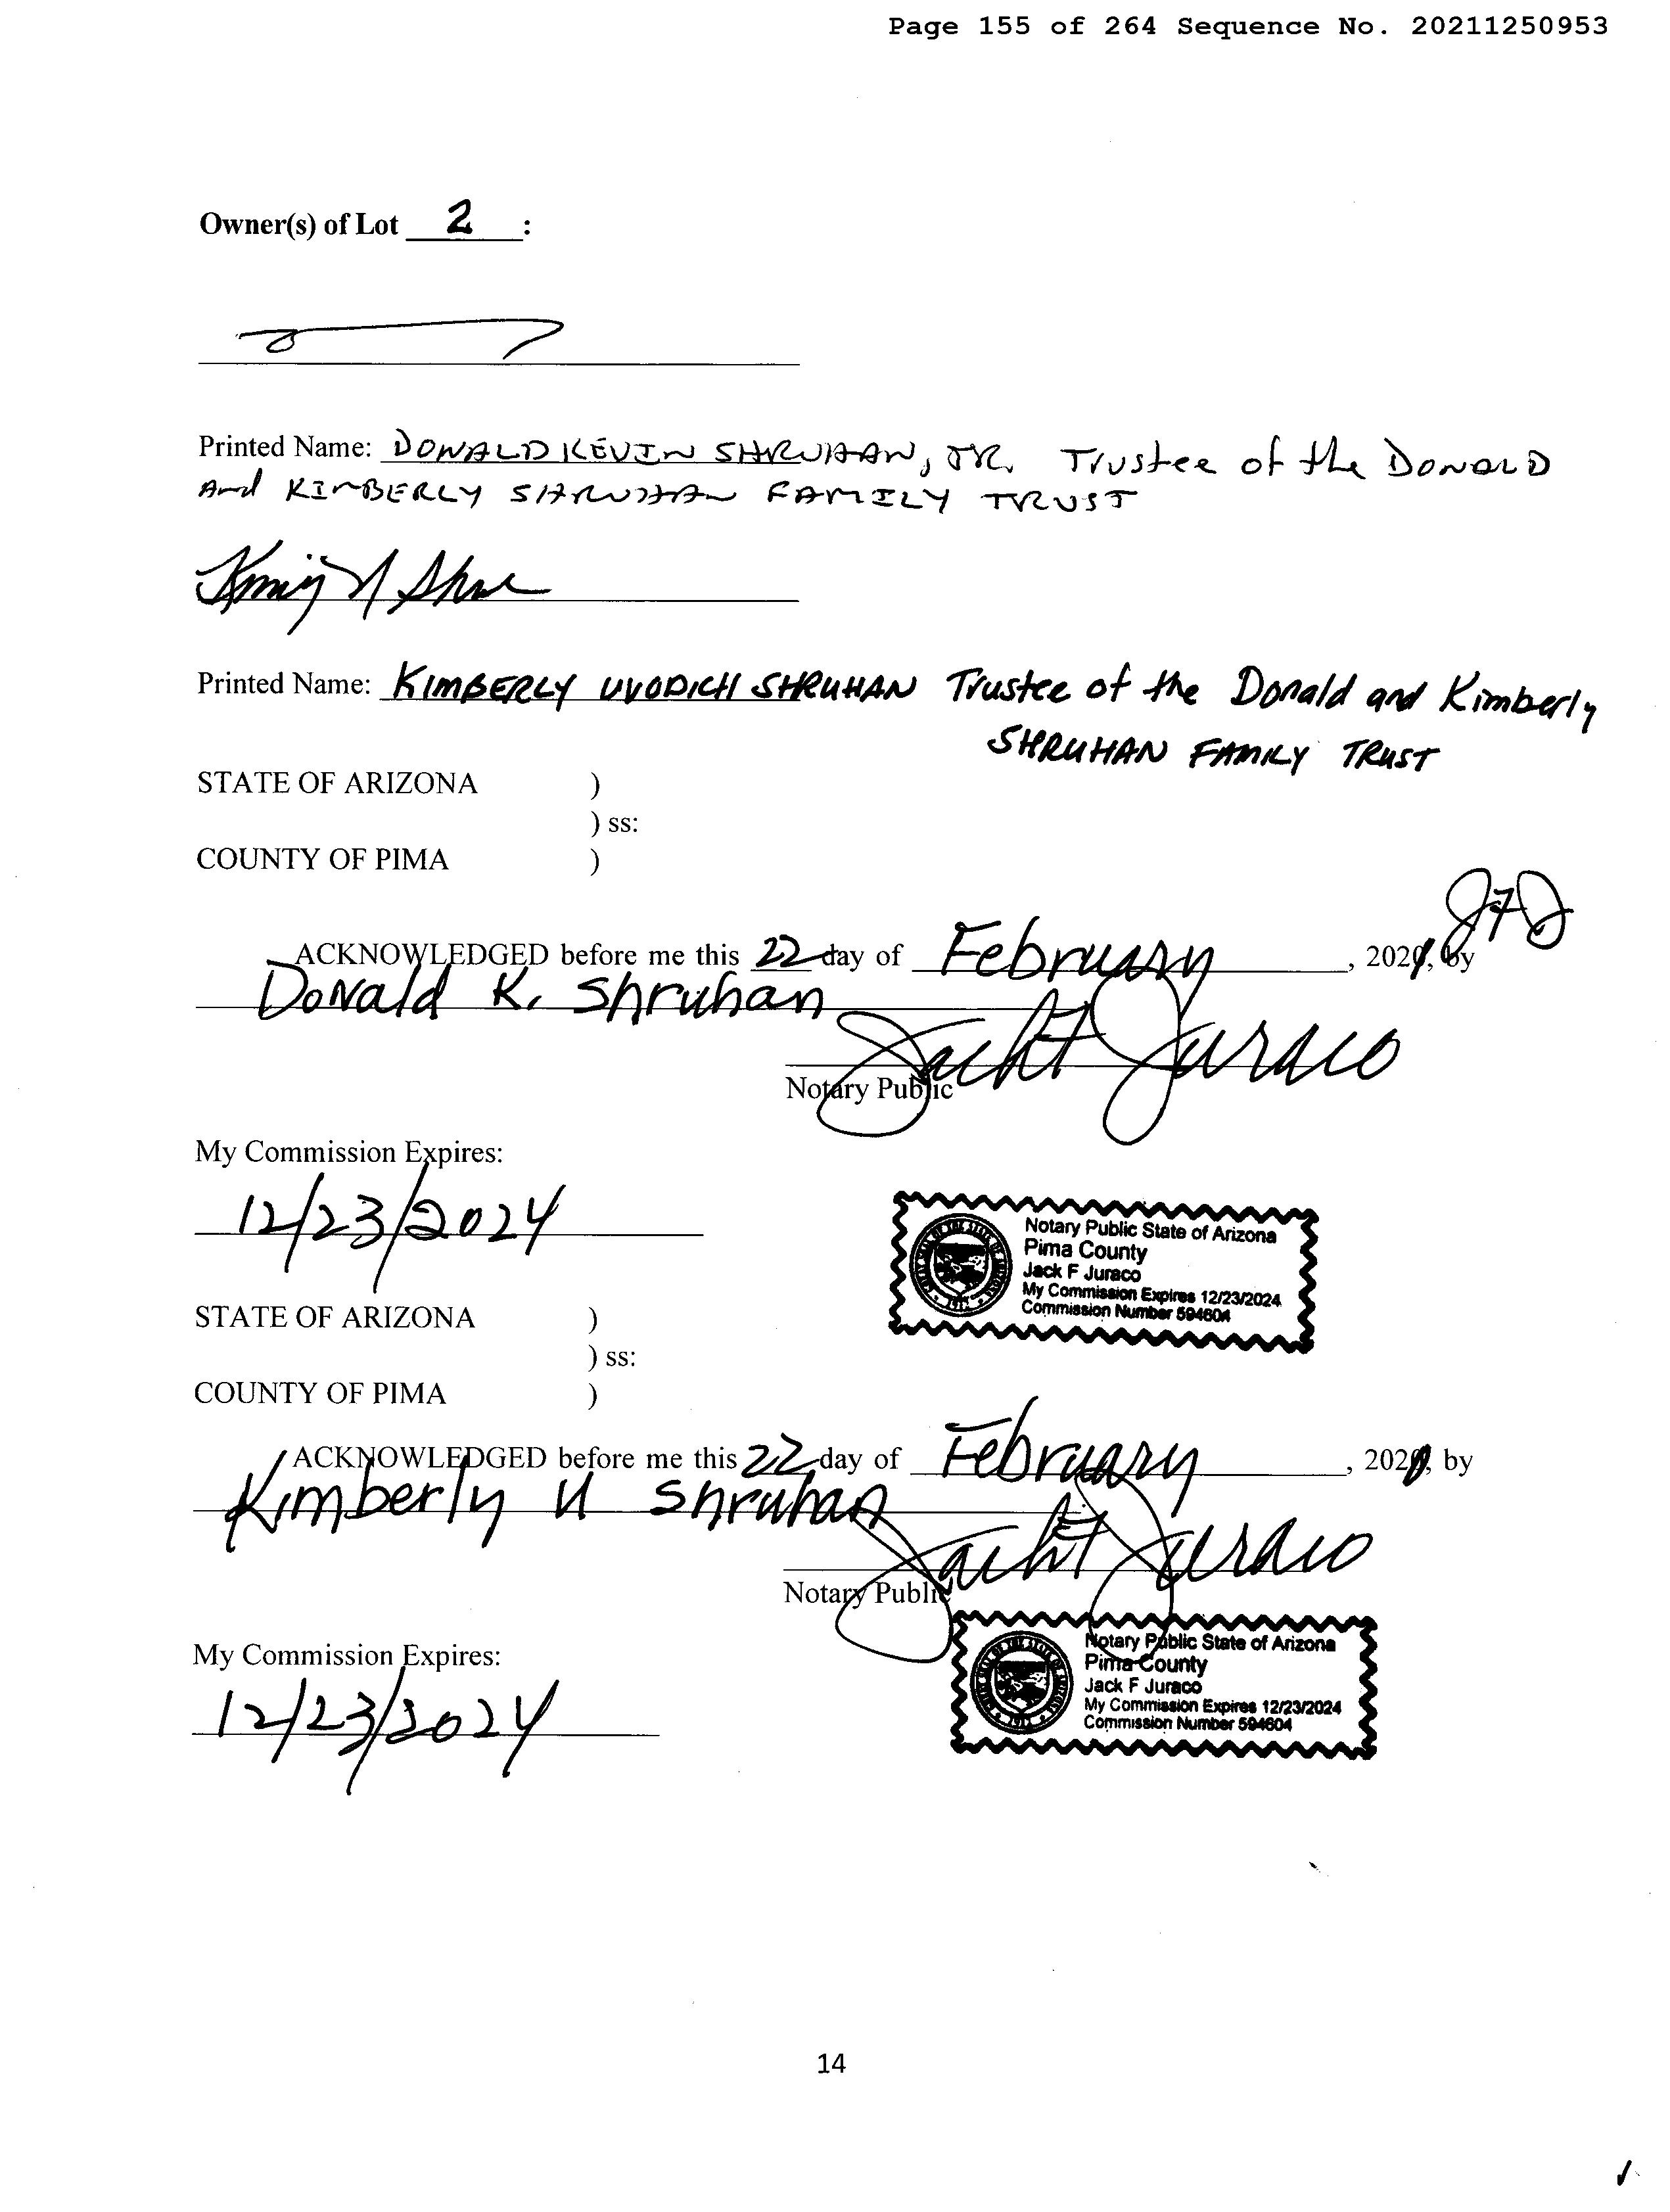 Page 155 of 264 Sequence No. 20211250953
Owner(s) of Lot 2 :
Printed Name: DONALD KEVIN SHRUHAN, JR. Trustee of the DONALD
And KIMBERLY SHRUHAN FAMILY TRUST
Printed Name: KIMBERLY UVODICH SHRUHAN Trustee of the Donald and Kimberly
SHRUHAN FAMILY TRUST
STATE OF ARIZONA )
) ss:
COUNTY OF PIMA )
JFJ
ACKNOWLEDGED before me this 22 day of February, 2021, by
Donald K. Shruhan
Jack F Juraco
Notary Public
My Commission Expires:
12/23/2024
Notary Public State of Arizona
Pima County
Jack F Juraco
My Commission Expires 12/23/2024
Commission Number 594604
STATE OF ARIZONA )
) ss:
COUNTY OF PIMA )
ACKNOWLEDGED before me this 22 day of February, 202, by
Kimberly U Shruhan
Jack F Juraco
Notary Public
My Commission Expires:
12/23/2024
Notary Public State of Arizona
Pima County
Jack F Juraco
My Commission Expires 12/23/2024
Commission Number 594604
14